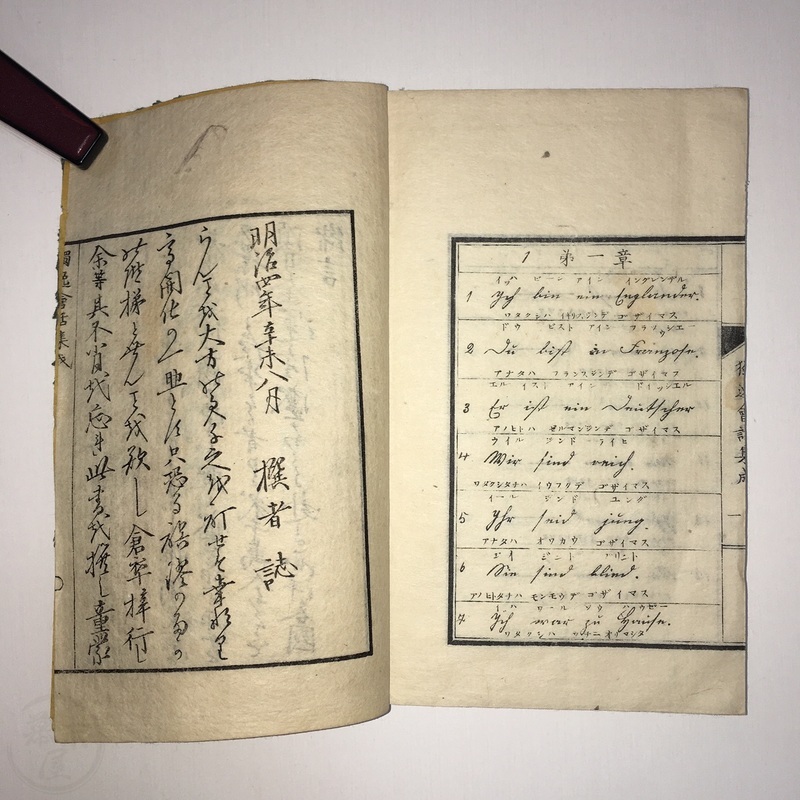 獨逸會話集成
余等其不肖を忘れ此書を撰し童蒙
の階梯となさんを欲し倉卒梓行し
開化の一 只恐る誤謬の多か
らん を大方の君子之を訂せ
明治四年辛未八月 撰者誌
1 第一章
イッヒ ビーン アイン イングレンデル
1 Ich bin ein Engländer.
ワタクシハ イギリスジンデ ゴザイマス
ドウ ビスト アイン フラノツエー
2 Du bist ein Franzose.
アナタハ フランスジンデ ゴザイマス
エル イスト アイン ドイッツエル
3 Er ist ein Deutscher
アノヒトハ ゼルマンジンデ ゴザイマス
ウイル ジンド ライヒ
4 Wir sind reich.
ワタクシタチハ イウフクデ ゴザイマス
イール ジンド ユング
5 Ihr seid jung.
アナタハ オワカウ ゴザイマス
ジント ブリント
6 Sie sind blind.
アノヒトタチハ モンモウデ ゴザイマス
イハ ワール ツウ ハウゼー
7 Ich war zu Hause.
ワタクシハ ウチニ オイマシタ
獨逸會話集成
一